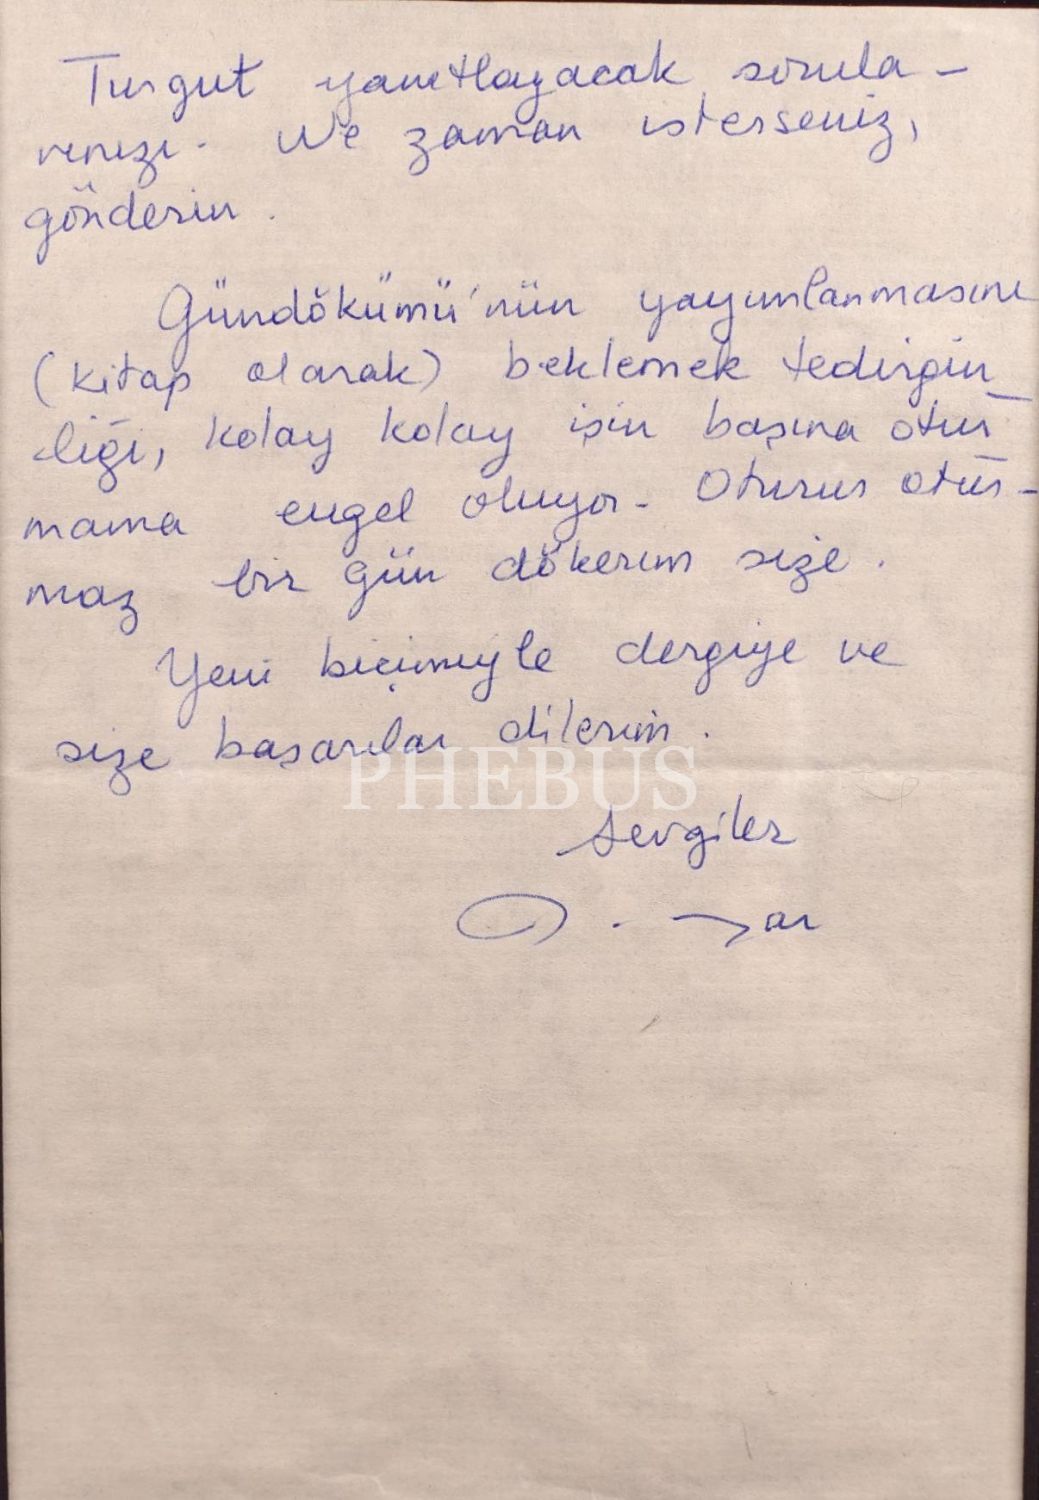 Turgut yanıtlayacak sorula-
rınızı. Ne zaman isterseniz,
gönderin.
Gündökümü'nün yayımlanmasını
(kitap olarak) beklemek tedirgin-
liği, kolay kolay işin başına otur-
mama engel oluyor. Oturur otur-
maz bir gün dökerim size.
Yeni biçimiyle dergiye ve
size başarılar dilerim.
PHEBUS
Sevgiler